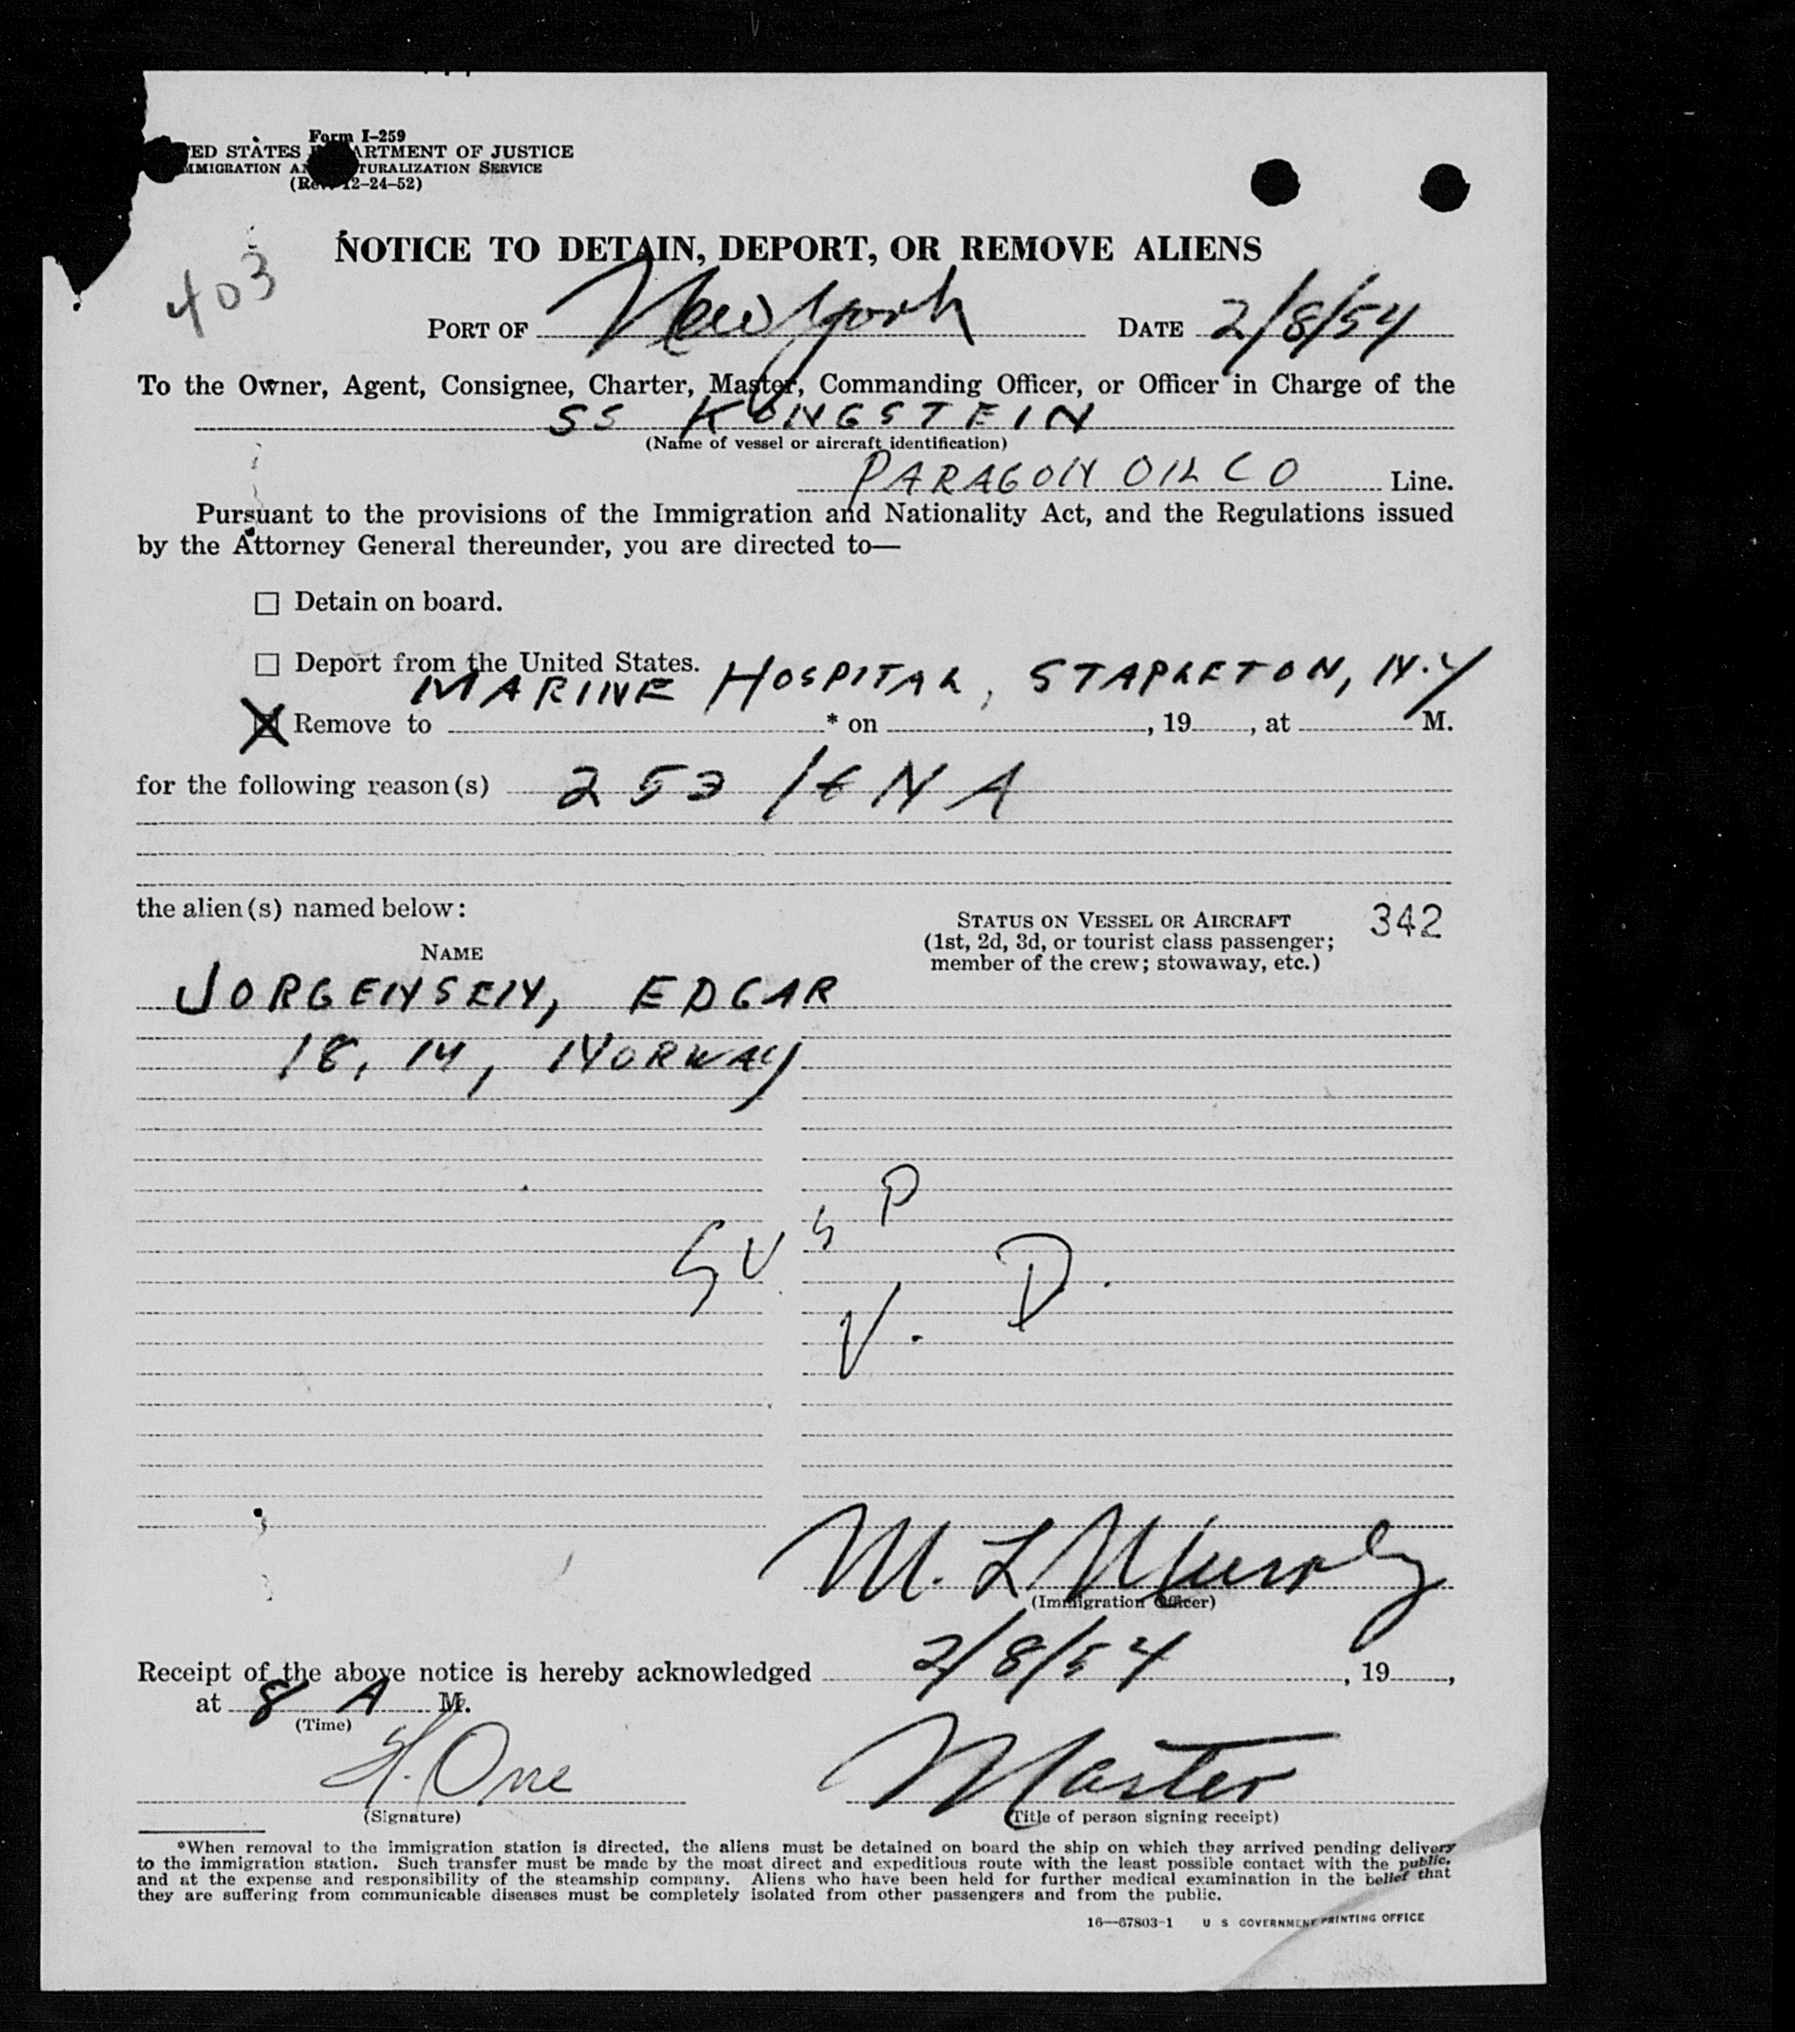 Form I-259
ED STATES ARTMENT OF JUSTICE
MMIGRATION A TURALIZATION SERVICE
(Rev. 12-24-52)
NOTICE TO DETAIN, DEPORT, OR REMOVE ALIENS
403
PORT OF New York DATE 2/8/54
To the Owner, Agent, Consignee, Charter, Master, Commanding Officer, or Officer in Charge of the
SS KONGSTEIN
(Name of vessel or aircraft identification)
PARAGON OIL CO Line.
Pursuant to the provisions of the Immigration and Nationality Act, and the Regulations issued
by the Attorney General thereunder, you are directed to—
☐ Detain on board.
☐ Deport from the United States.
MARINE HOSPITAL, STAPLETON, N.Y
☒ Remove to * on , 19 , at M.
for the following reason(s) 253 I & N A
the alien(s) named below:
STATUS ON VESSEL OR AIRCRAFT 342
(1st, 2d, 3d, or tourist class passenger;
NAME
member of the crew; stowaway, etc.)
JORGENSEN, EDGAR
18, M, NORWAY
SUSP
V. D.
M. L Murphy
(Immigration Officer)
Receipt of the above notice is hereby acknowledged 2/8/54 , 19 ,
at 8 A M.
(Time)
H. One Master
(Signature) (Title of person signing receipt)
*When removal to the immigration station is directed, the aliens must be detained on board the ship on which they arrived pending delivery
to the immigration station. Such transfer must be made by the most direct and expeditious route with the least possible contact with the public,
and at the expense and responsibility of the steamship company. Aliens who have been held for further medical examination in the belief that
they are suffering from communicable diseases must be completely isolated from other passengers and from the public.
16—67803-1 U S GOVERNMENT PRINTING OFFICE